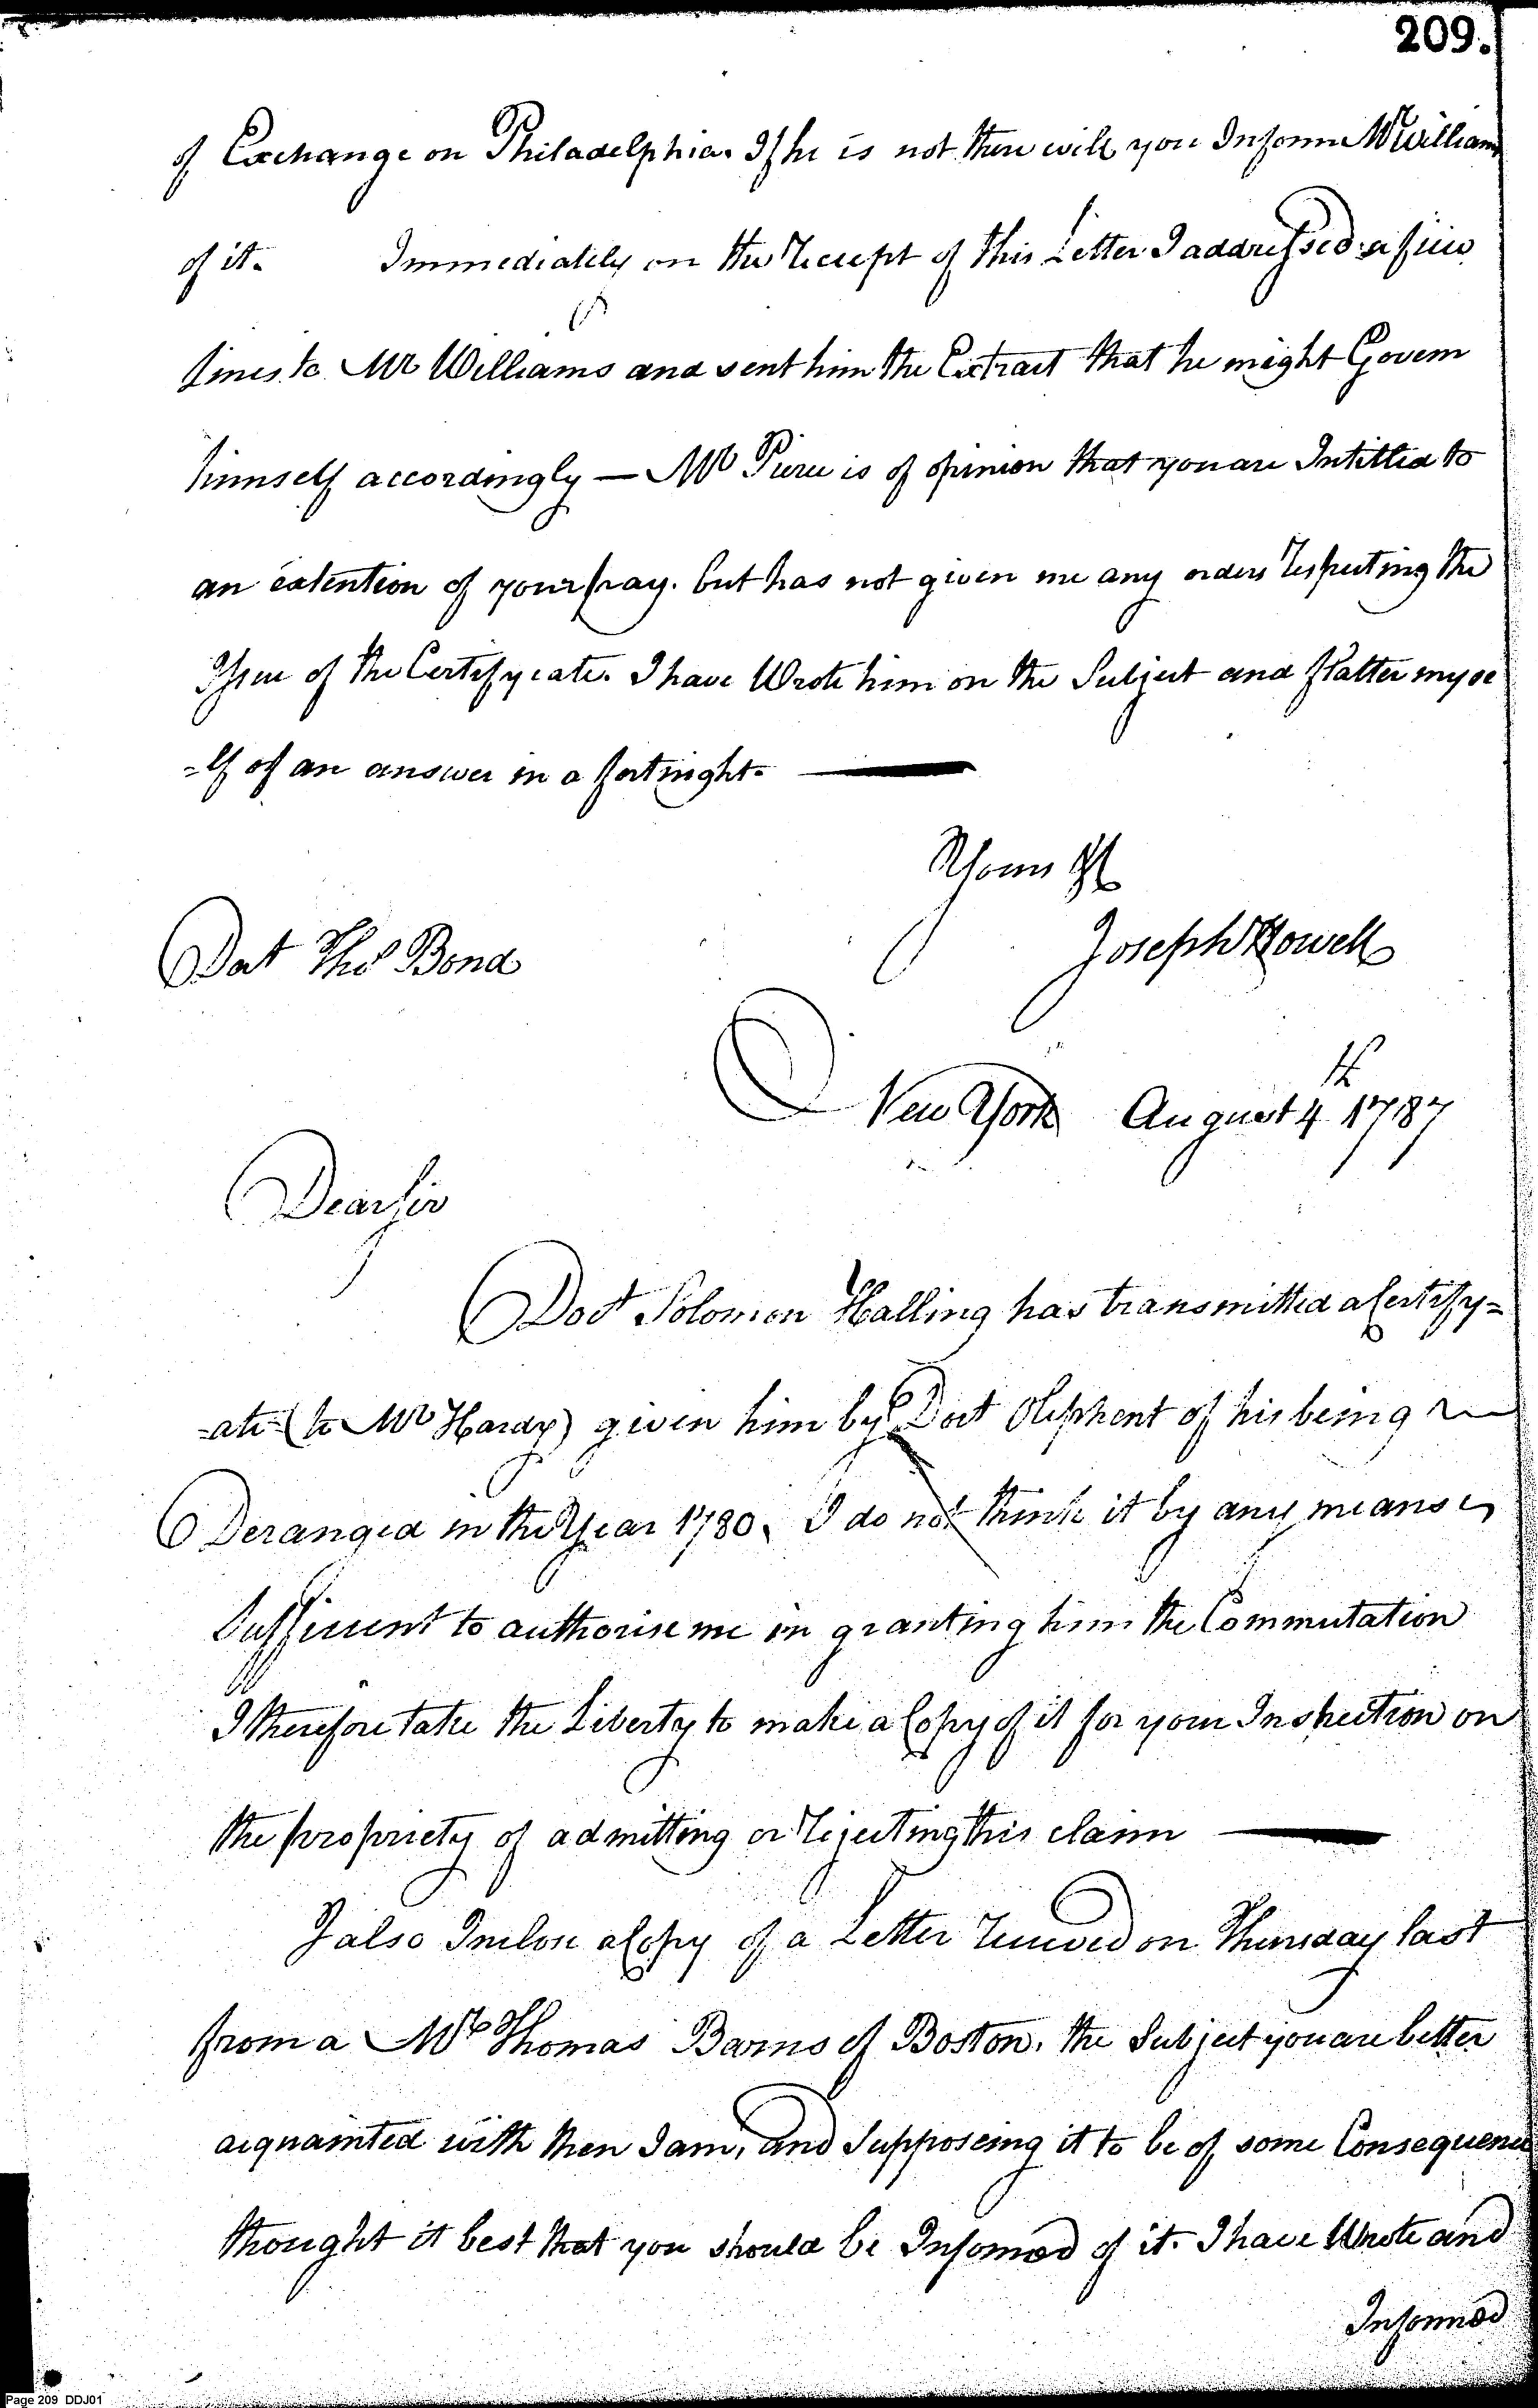 209.
of Exchange on Philadelphia. If he is not there will you Informe Mr William
of it. Immediately on the Receipt of this Letter I addressed a few
lines to Mr Williams and sent him the Extract that he might Govern
himself accordingly — Mr Pierce is of opinion that you are Intitled to
an extention of your pay. but has not given me any orders Respecting the
Issue of the Certifycate. I have Wrote him on the Subject and flatter myse
=lf of an answer in a fortnight. —
Yours &c
Joseph Howell
Doct Thos Bond
New York August 4th 1787
Dear Sir
Doct Solomon Halling has transmitted a Certify=
-ate (to Mr Hardy) given him by Doct Olephent of his being
Deranged in the Year 1780. I do not think it by any means
Sufficient to authorise me in granting him the Commutation
I therefore take the Liberty to make a Copy of it for your Inspection on
the propriety of admitting or Rejecting this claim —
I also Inclose a Copy of a Letter Received on Thursday last
from a Mr Thomas Barns of Boston. the Subject you are better
acquainted with then I am, and Supposeing it to be of some Consequence
thought it best that you should be Informed of it. I have Wrote and
Informed
Page 209 DDJ01